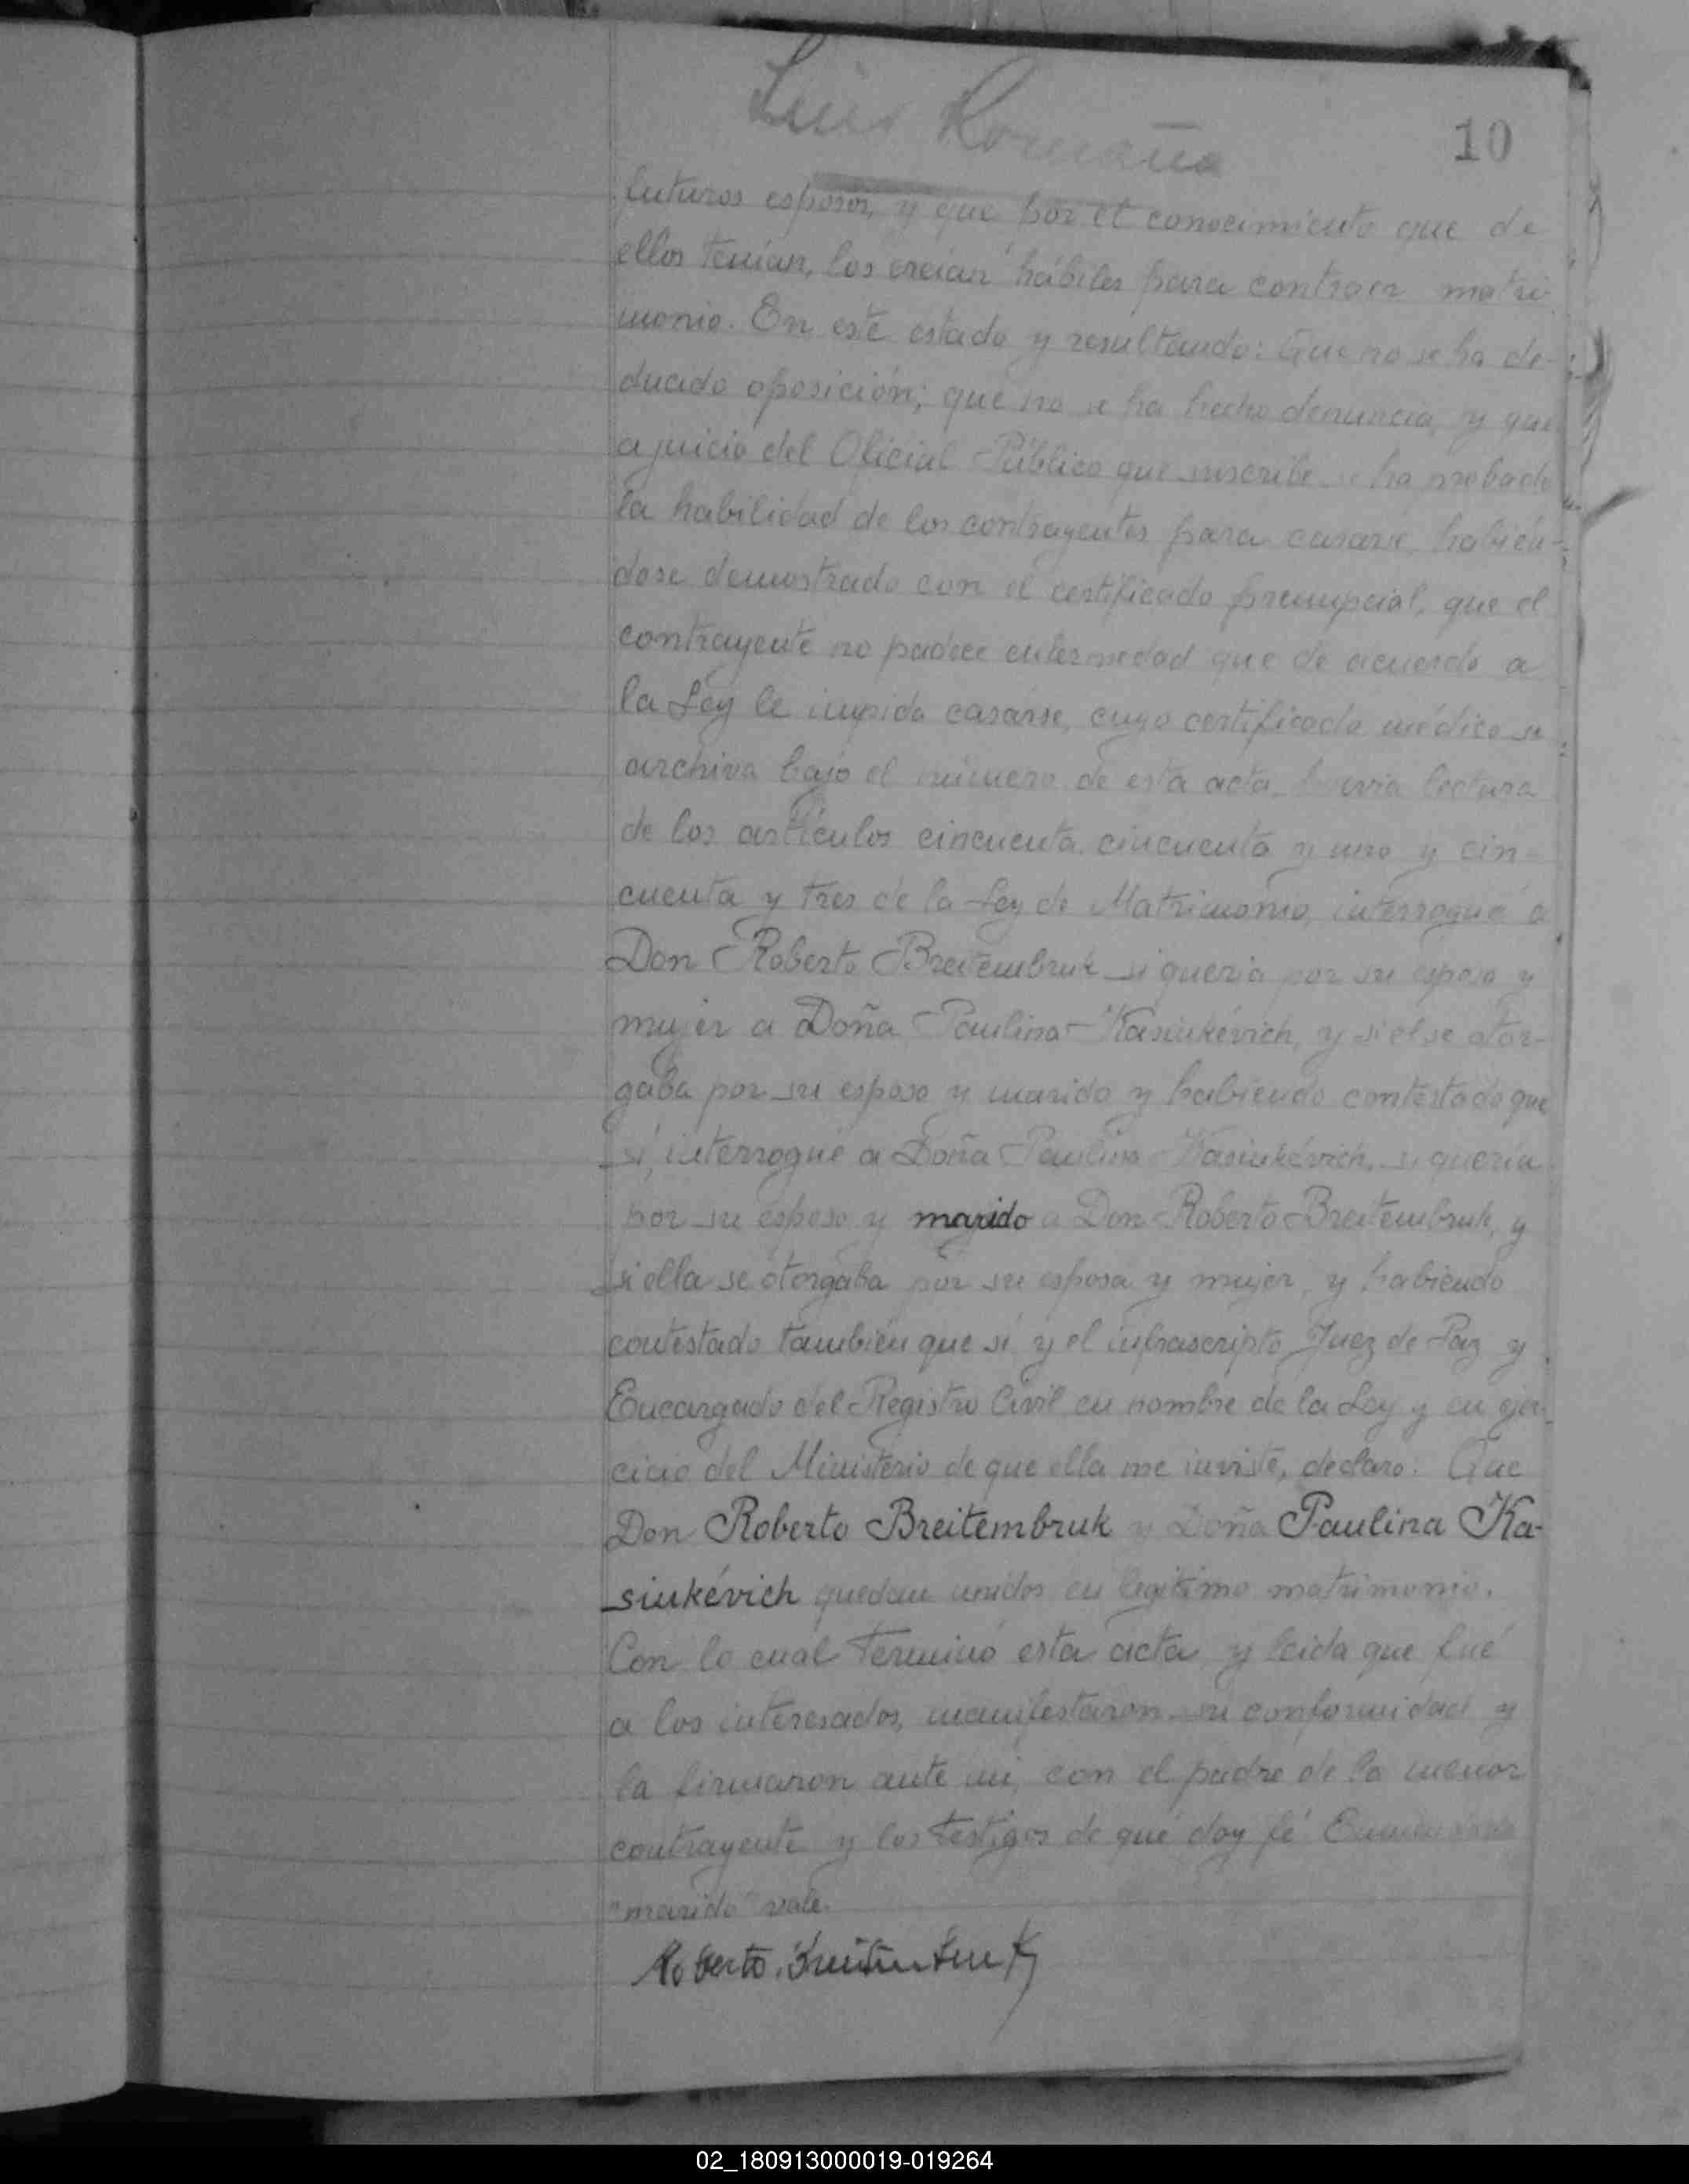 Luis Romaña
10
futuros esposos, y que por el conocimiento que de
ellos tenían, los creían hábiles para contraer matri-
monio. En este estado y resultando: Que no se ha de-
ducido oposición; que no se ha hecho denuncia, y que
a juicio del Oficial Público que suscribe se ha probado
la habilidad de los contrayentes para casarse, habién-
dose demostrado con el certificado prenupcial, que el
contrayente no padece enfermedad que de acuerdo a
la Ley le impida casarse, cuyo certificado médico se
archiva bajo el número de esta acta, previa lectura
de los artículos cincuenta, cincuenta y uno y cin-
cuenta y tres de la Ley de Matrimonio, interrogué a
Don Roberto Breitembruk si quería por su esposa y
mujer a Doña Paulina Kasiukévich, y si el se otor-
gaba por su esposo y marido y habiendo contestado que
si, interrogué a Doña Paulina Kasiukévich, si quería
por su esposo y marido a Don Roberto Breitembruk, y
si ella se otorgaba por su esposa y mujer, y habiendo
contestado también que sí y el infrascripto Juez de Paz y
Encargado del Registro Civil en nombre de la Ley y en ejer-
cicio del Ministerio de que ella me inviste, declaro: Que
Don Roberto Breitembruk y Doña Paulina Ka-
siukévich quedan unidos en legítimo matrimonio.
Con lo cual terminó esta acta y leida que fué
a los interesados, manifestaron su conformidad y
la firmaron ante mi, con el padre de la menor
contrayente y los testigos de que doy fé. Enmendado
"marido" vale.
Roberto Breitembruk
02_180913000019-019264